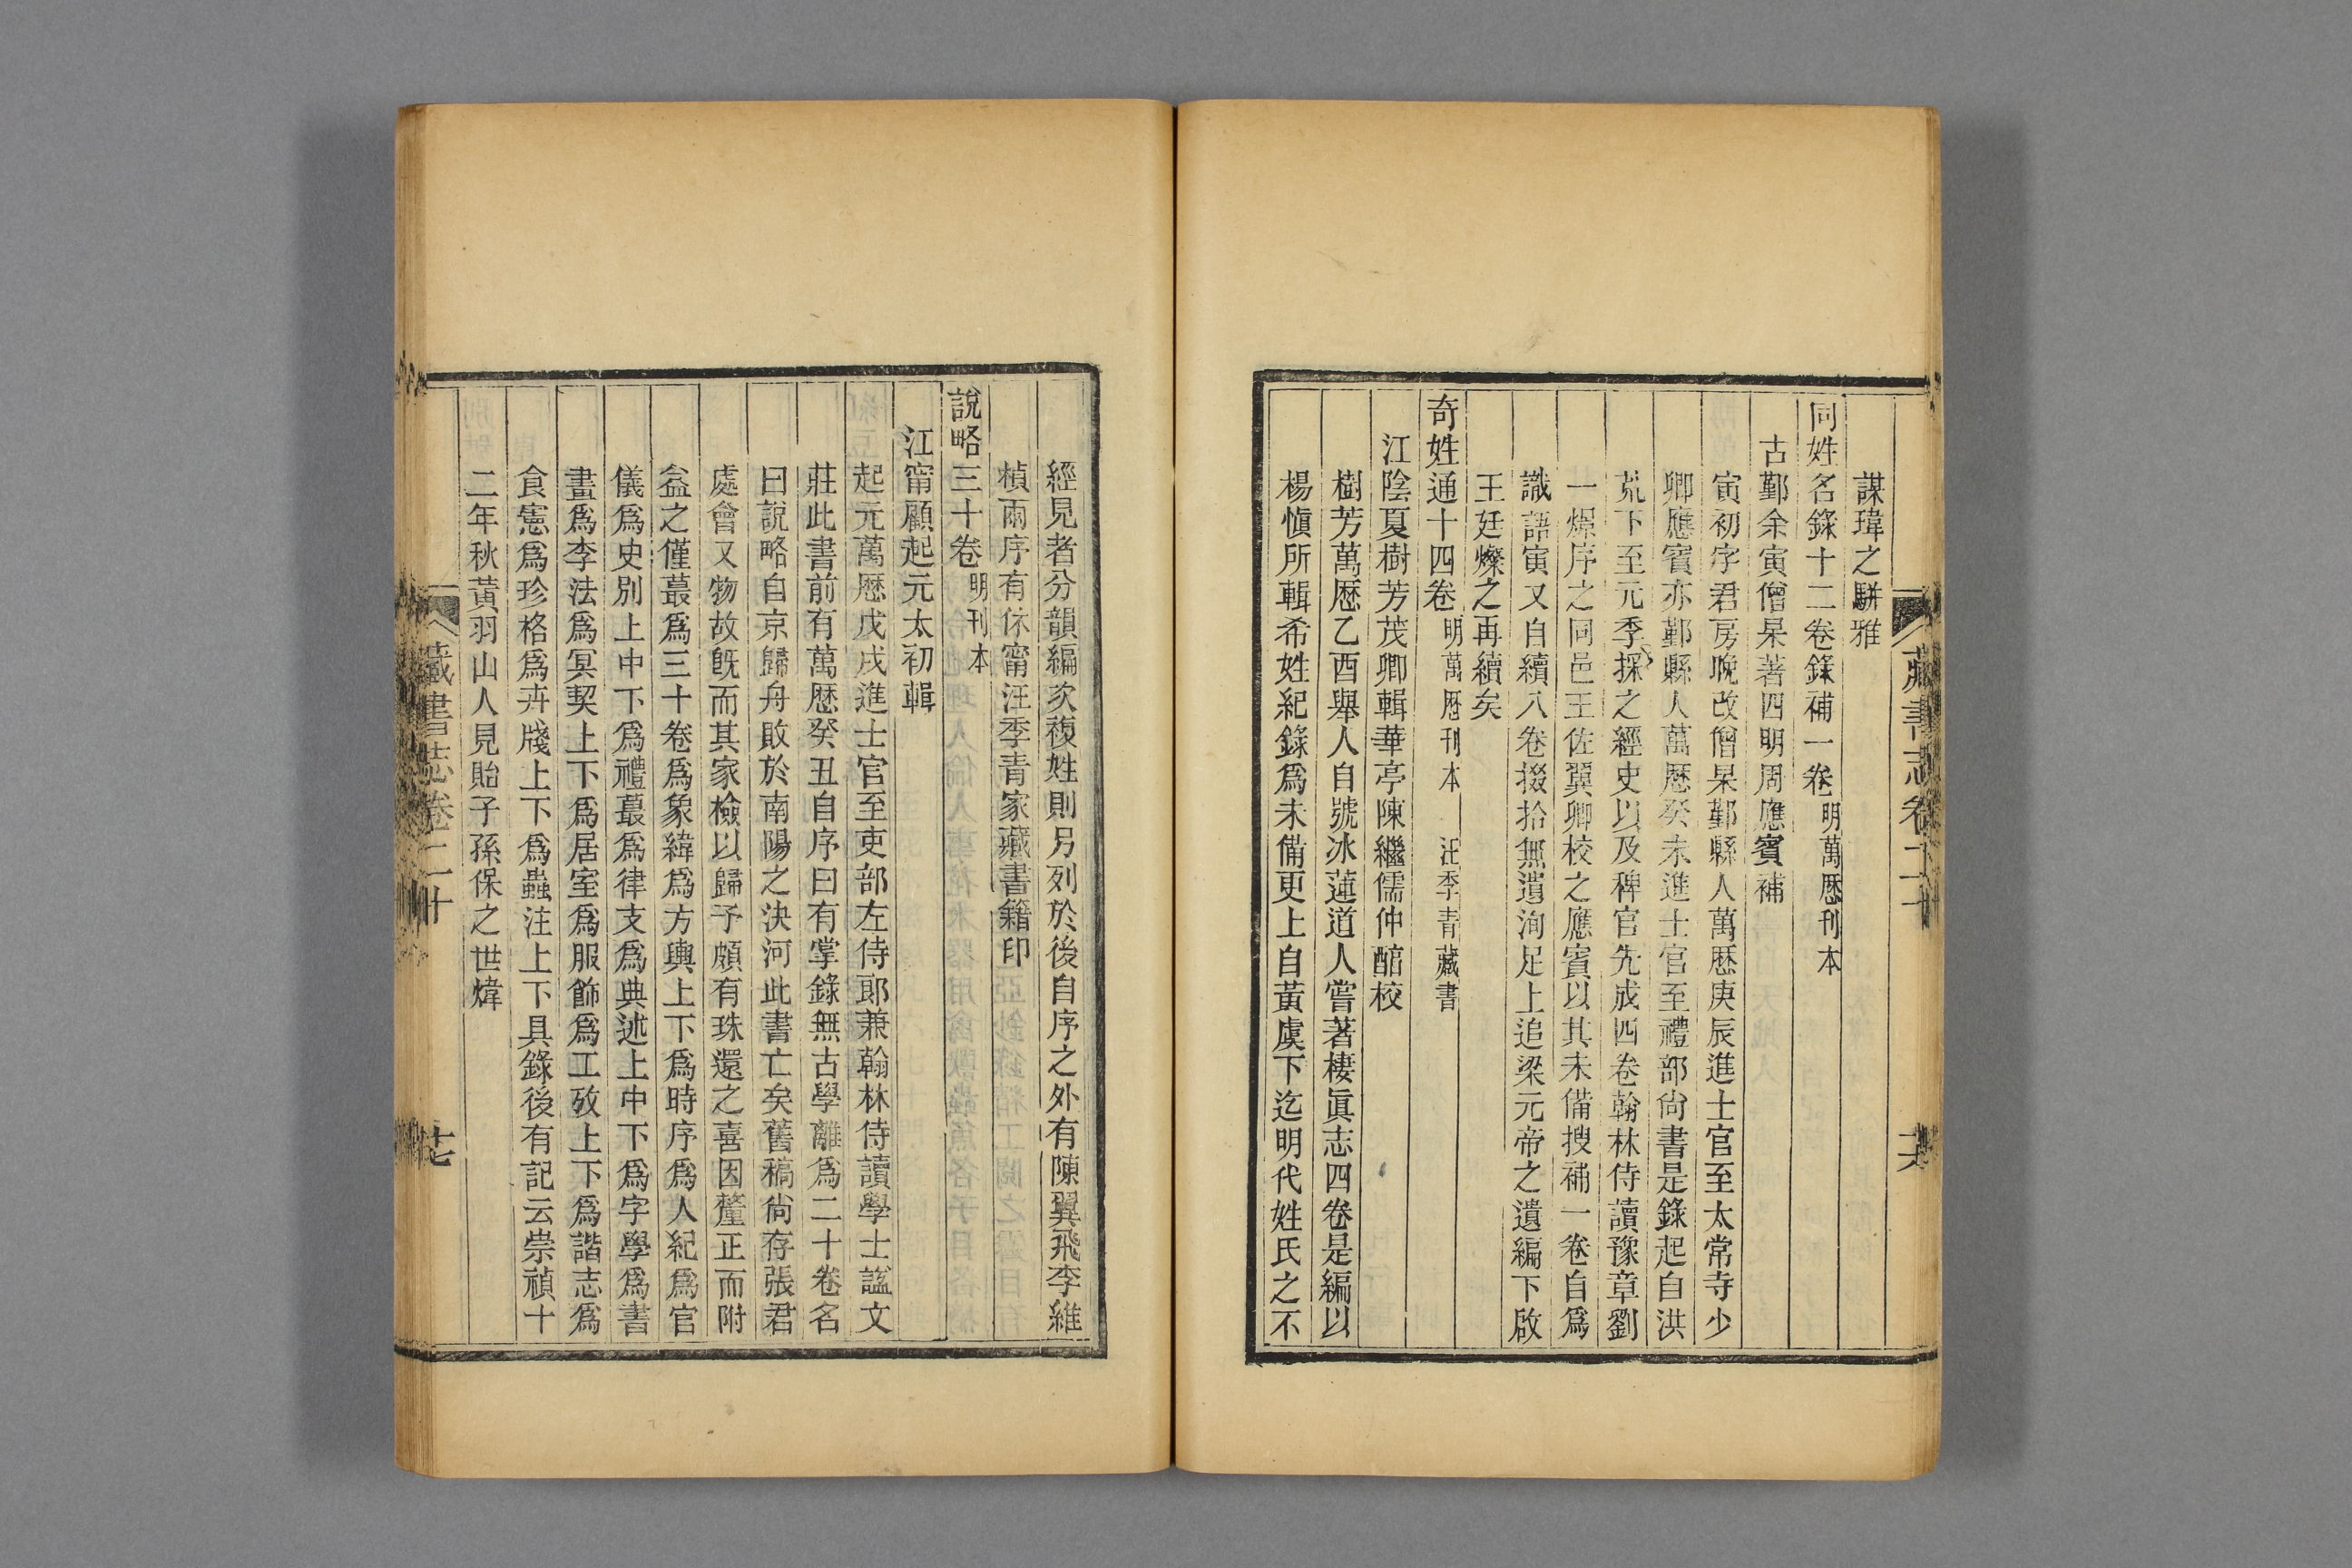 藏書志卷二十
十六
謀㙔之駢雅
同姓名錄十二卷錄補一卷明萬歷刊本
古鄞余寅僧杲著四明周應賓補
寅初字君房晚改僧杲鄞縣人萬歷庚辰進士官至太常寺少
卿應賓亦鄞縣人萬歷癸未進士官至禮部尙書是錄起自洪
荒下至元季採之經史以及稗官先成四卷翰林侍讀豫章劉
一燝序之同邑王佐翼卿校之應賓以其未備搜補一卷自爲
識語寅又自續八卷掇拾無遺洵足上追梁元帝之遺編下啟
王廷燦之再續矣
奇姓通十四卷明萬歷刊本 汪季青藏書
江陰夏樹芳茂卿輯華亭陳繼儒仲醕校
樹芳萬歷乙酉舉人自號冰蓮道人嘗著棲眞志四卷是編以
楊愼所輯希姓紀錄爲未備更上自黃虞下迄明代姓氏之不
經見者分韻編次複姓則另列於後自序之外有陳翼飛李維
楨兩序有休甯汪季青家藏書籍印
說略三十卷明刊本
江甯顧起元太初輯
起元萬歷戊戌進士官至吏部左侍郎兼翰林侍讀學士諡文
莊此書前有萬歷癸丑自序曰有掌錄無古學離爲二十卷名
曰說略自京歸舟敗於南陽之決河此書亡矣舊稿尙存張君
處會又物故旣而其家檢以歸予頗有珠還之喜因釐正而附
益之僅蕞爲三十卷爲象緯爲方輿上下爲時序爲人紀爲官
儀爲史別上中下爲禮蕞爲律支爲典述上中下爲字學爲書
畫爲李法爲冥契上下爲居室爲服飾爲工攷上下爲諧志爲
食憲爲珍格爲卉牋上下爲蟲注上下具錄後有記云崇禎十
二年秋黃羽山人見貽子孫保之世煒
藏書志卷二十
十七